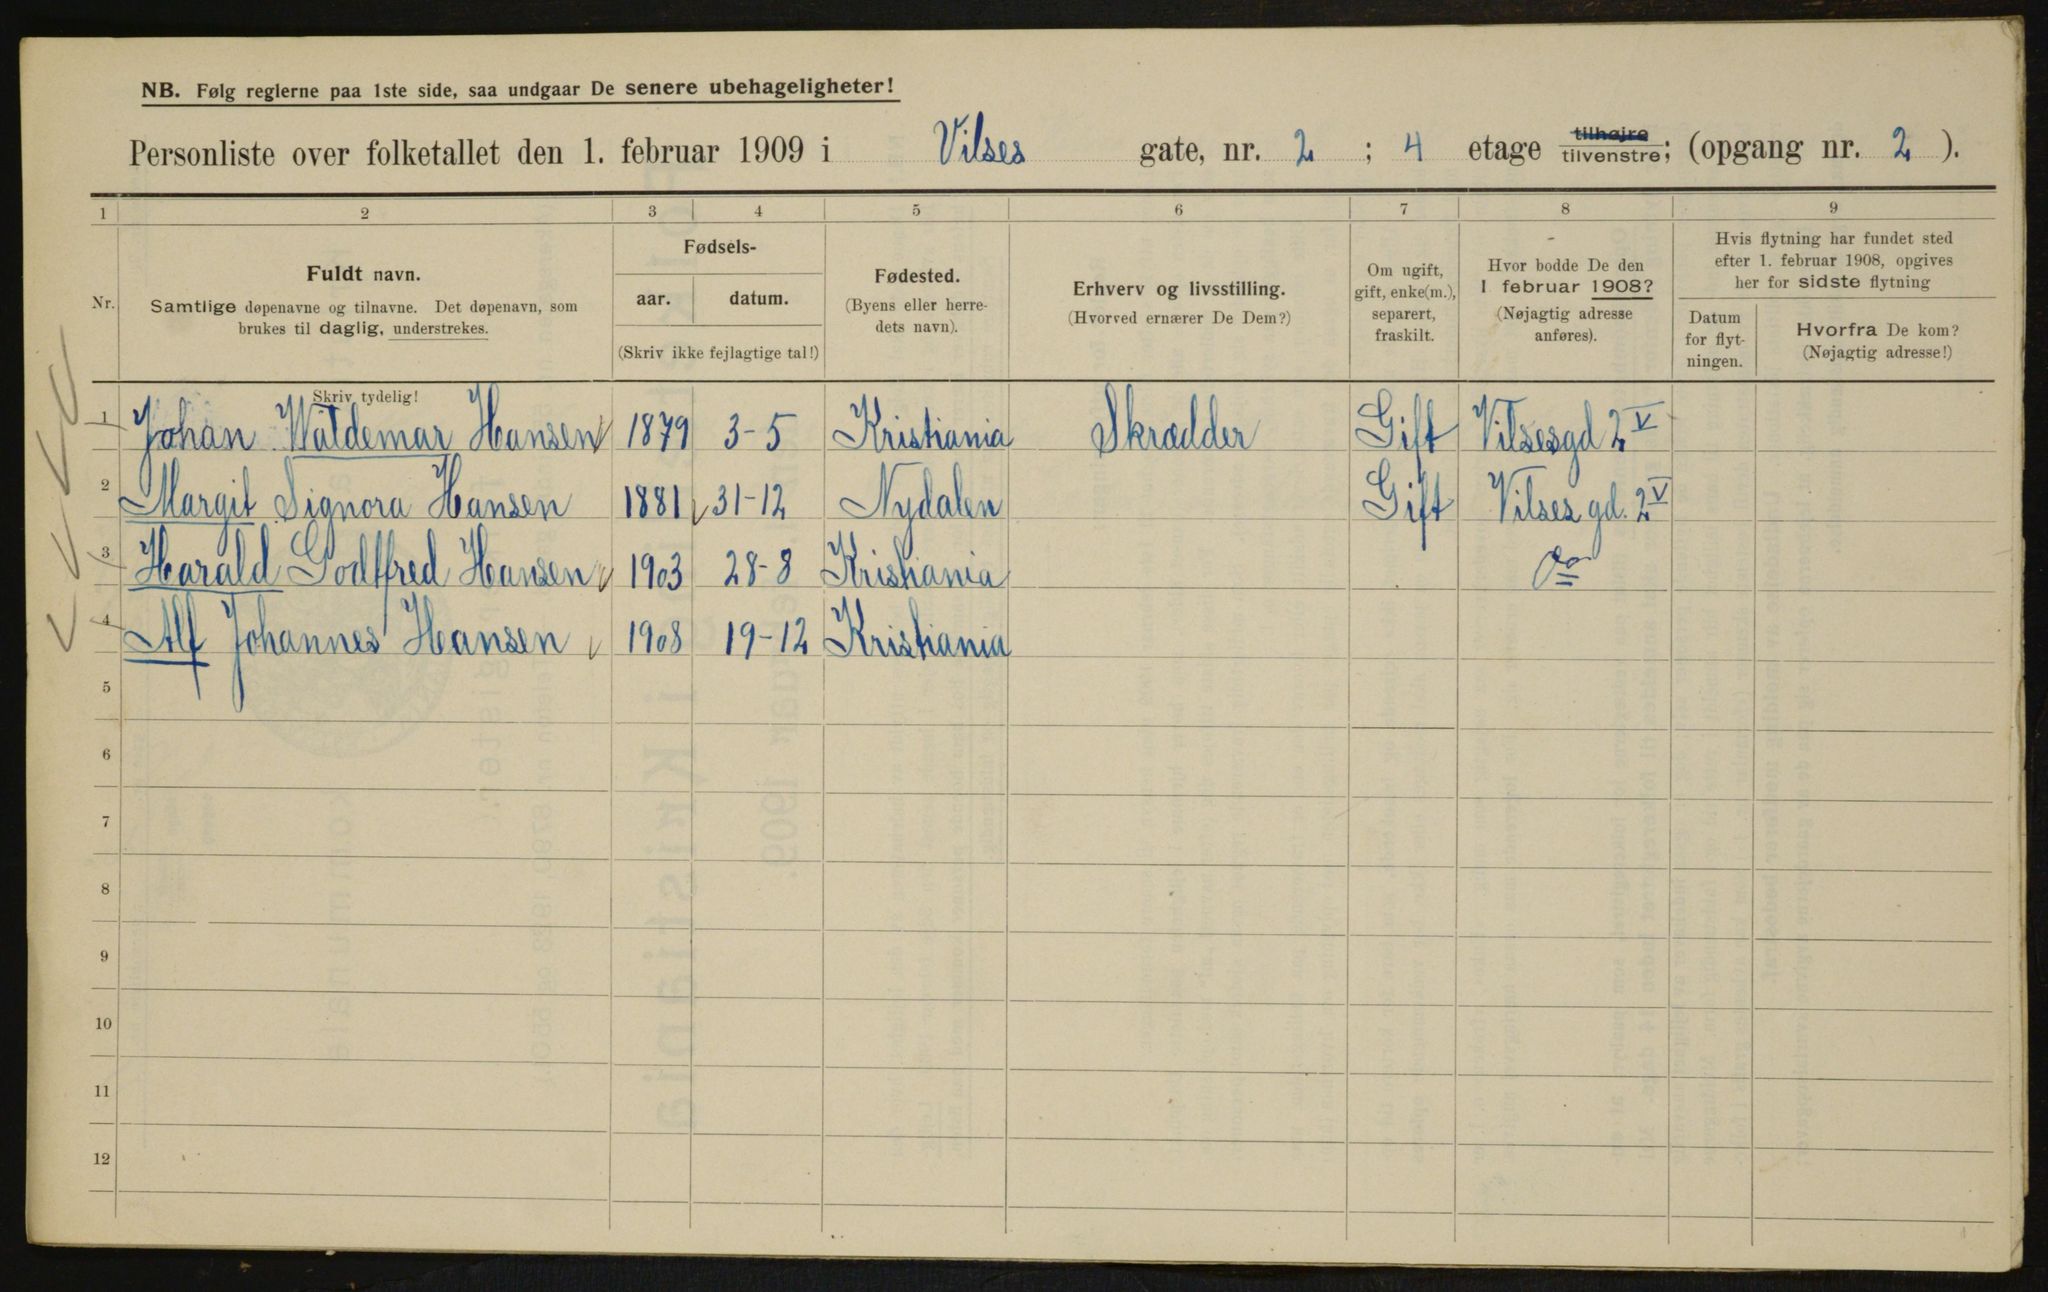 NB. Følg reglerne paa 1ste side, saa undgaar De senere ubehageligheter!
Personliste over folketallet den 1. februar 1909 i Vilses gate, nr. 2 ; 4 etage tilhøjre tilvenstre; (opgang nr. 2 ).
1 2 3 4 5 6 7 8 9
Nr.
Fuldt navn.
Samtlige døpenavne og tilnavne. Det døpenavn, som
brukes til daglig, understrekes.
Fødsels-
aar. datum.
(Skriv ikke fejlagtige tal!)
Fødested.
(Byens eller herre-
dets navn).
Erhverv og livsstilling.
(Hvorved ernærer De Dem?)
Om ugift,
gift, enke(m.),
separert,
fraskilt.
Hvor bodde De den
1 februar 1908?
(Nøjagtig adresse
anføres).
Hvis flytning har fundet sted
efter 1. februar 1908, opgives
her for sidste flytning
Datum
for flyt-
ningen.
Hvorfra De kom?
(Nøjagtig adresse!)
Skriv tydelig!
1 Johan Waldemar Hansen 1879 3-5 Kristiania Skrædder Gift Vilsesgd 2 V
2 Margit Signora Hansen 1881 31-12 Nydalen Gift Vilses gd. 2 V
3 Harald Godtfred Hansen 1903 28-8 Kristiania Do
4 Alf Johannes Hansen 1908 19-12 Kristiania
5
6
7
8
9
10
11
12